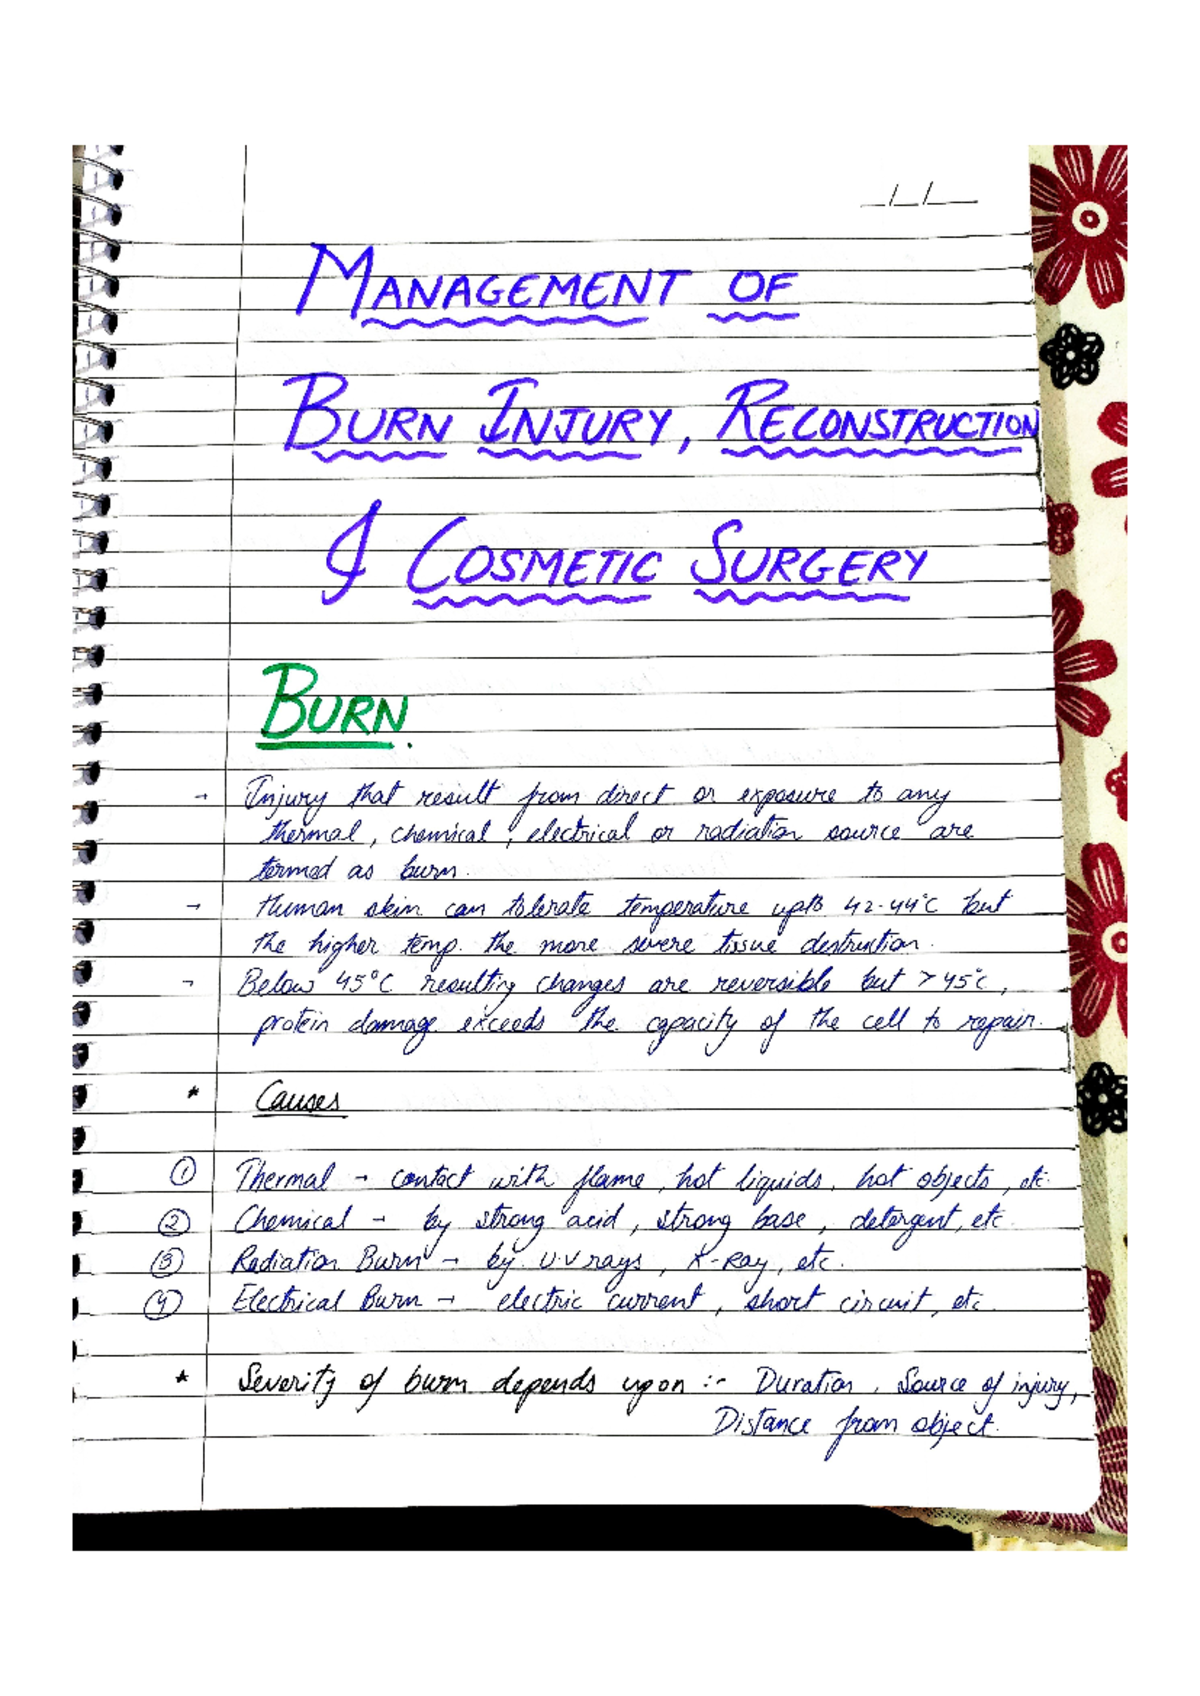 _/_/__
MANAGEMENT OF
BURN INJURY, RECONSTRUCTION
& COSMETIC SURGERY
BURN.
→ Injury that result from direct or exposure to any
thermal, chemical, electrical or radiation source are
termed as burn.
→ Human skin can tolerate temperature upto 42-44°C but
the higher temp. the more severe tissue destruction.
→ Below 45°C resulting changes are reversible but >45°C,
protein damage exceeds the capacity of the cell to repair.
* Causes
① Thermal → contact with flame, hot liquids, hot objects, etc.
② Chemical → by strong acid, strong base, detergent, etc.
③ Radiation Burn → by U.V rays, X-Ray, etc.
④ Electrical Burn → electric current, short circuit, etc.
* Severity of burn depends upon :- Duration, Source of injury,
Distance from object.